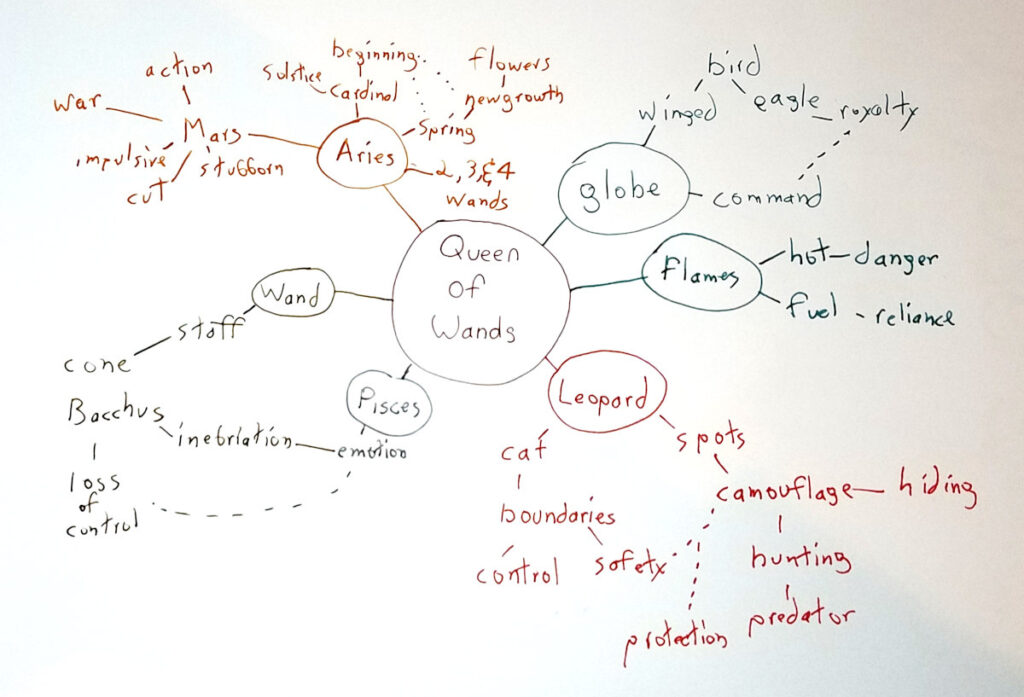 Queen
of
Wands
Aries
cardinal
solstice
beginning
spring
newgrowth
flowers
2, 3, & 4
wands
Mars
action
war
impulsive
cut
stubborn
globe
winged
bird
eagle
royalty
command
Flames
hot - danger
fuel - reliance
Leopard
cat
boundaries
control
safety
spots
camouflage
hiding
hunting
predator
protection
Pisces
emotion
inebriation
Bacchus
loss
of
control
Wand
staff
cone